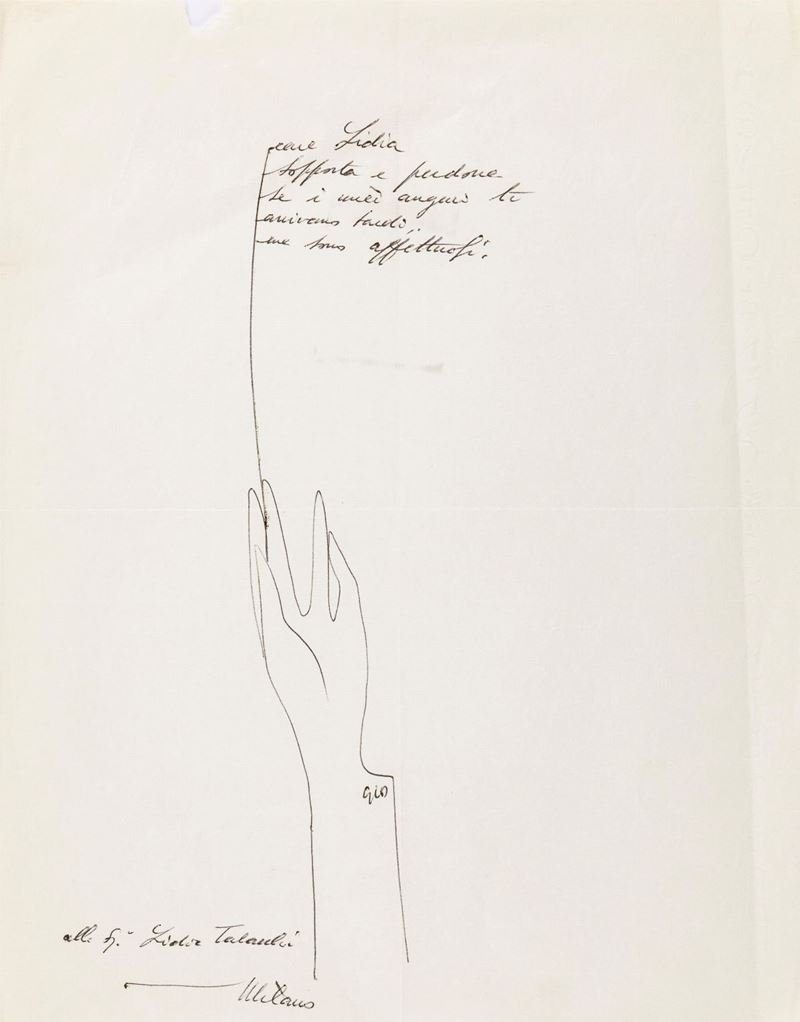 cara Lidia
sopporta e perdona
se i miei auguri ti
arrivano tardi,
ma sono affettuosi.
Gio
alla Sig.ra Lidia
Milano